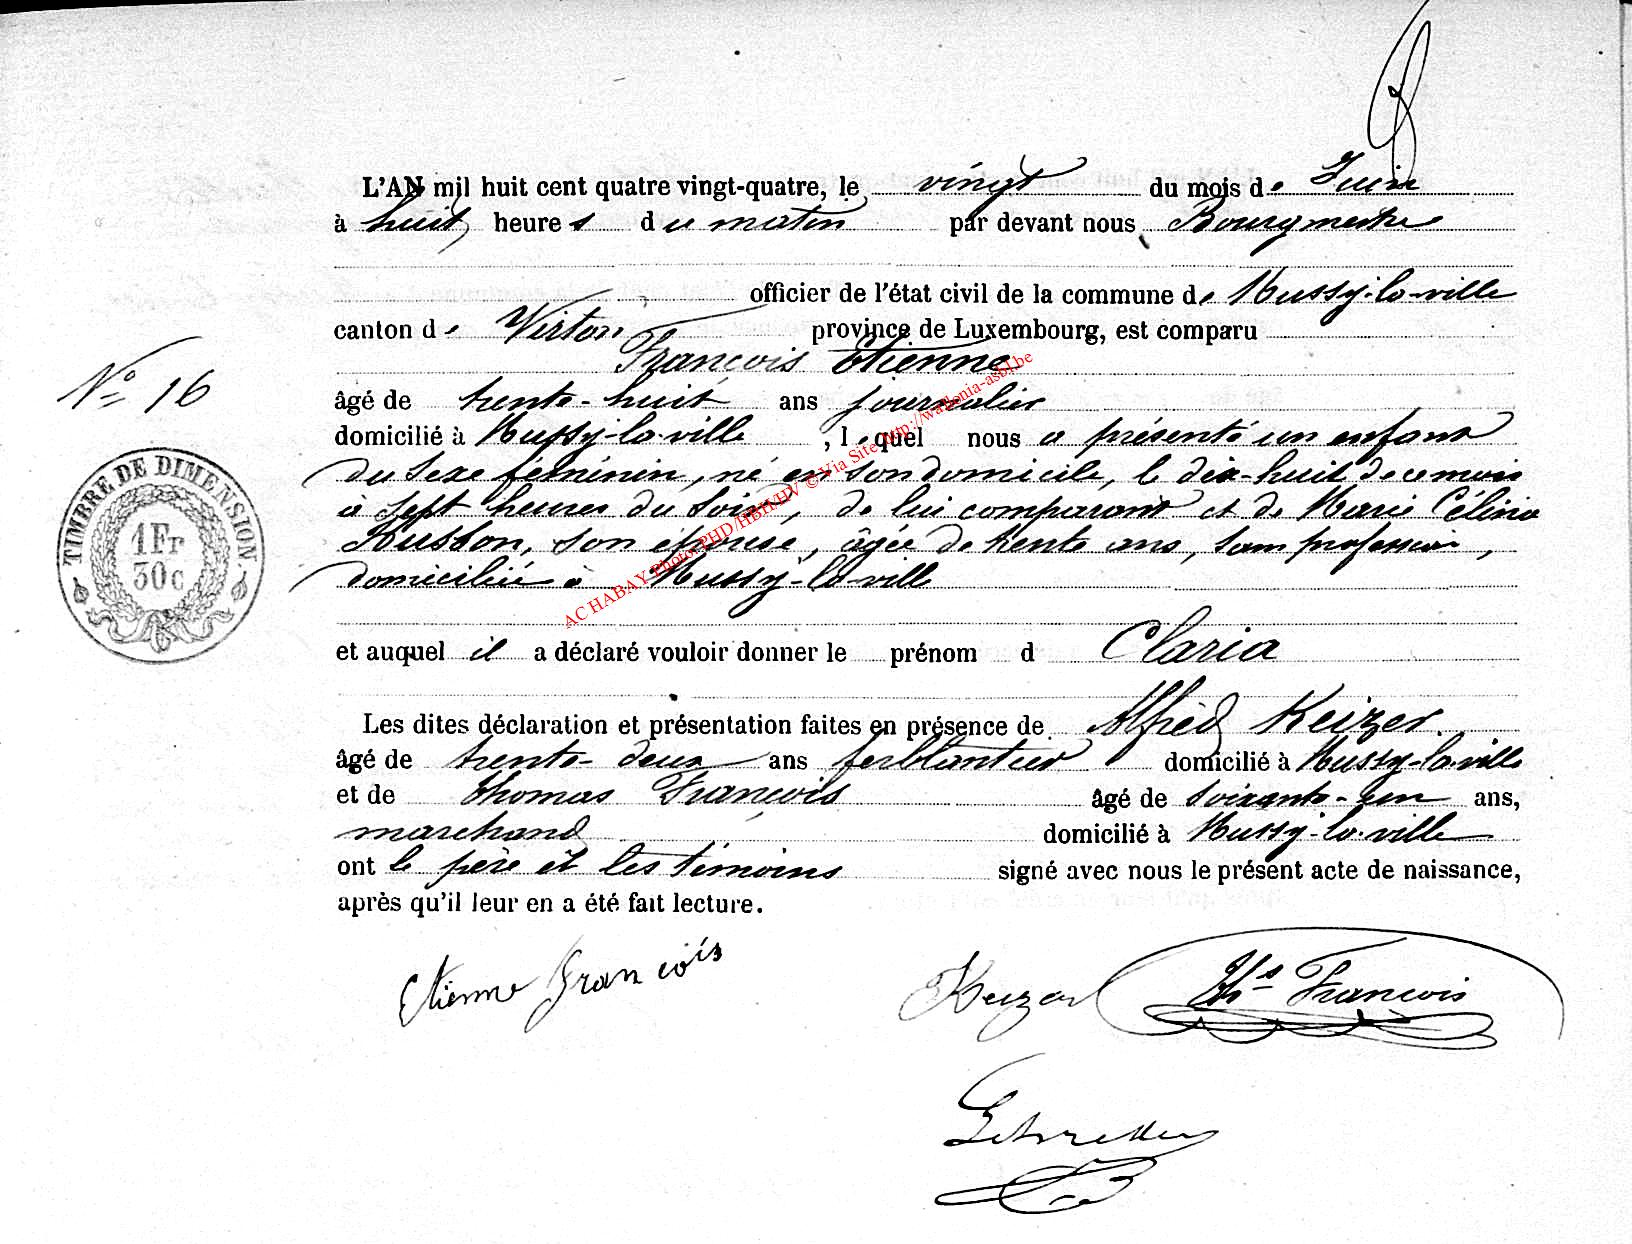 L'AN mil huit cent quatre vingt-quatre, le vingt du mois de Juin
à huit heures du matin par devant nous Bourgmestre
officier de l'état civil de la commune de Mussy-la-ville
canton de Virton province de Luxembourg, est comparu
François Etienne
N° 16
âgé de trente-huit ans journalier
domicilié à Mussy-la-ville, lequel nous a présenté un enfant
du sexe féminin, né en son domicile, le dix-huit de ce mois
à sept heures du soir, de lui comparant et de Marie Célina
Husson, son épouse, âgée de trente ans, sans profession,
domiciliée à Mussy-la-ville
TIMBRE DE DIMENSION.
1 Fr
30 c
et auquel il a déclaré vouloir donner le prénom d Claria
Les dites déclaration et présentation faites en présence de Alfred Keizer.
âgé de trente-deux ans ferblantier domicilié à Mussy-la-ville
et de Thomas François âgé de soixante-un ans,
marchand domicilié à Mussy-la-ville
ont le père et les témoins signé avec nous le présent acte de naissance,
après qu'il leur en a été fait lecture.
Etienne François
Keizer Ths François
AC HABAY Photo PHD/HBH/HV © Via Site http://wallonia-asbl.be